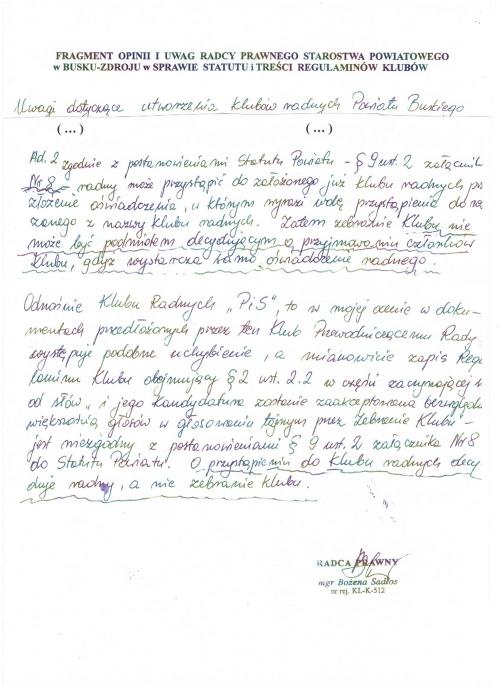 FRAGMENT OPINII I UWAG RADCY PRAWNEGO STAROSTWA POWIATOWEGO
w BUSKU-ZDROJU w SPRAWIE STATUTU i TREŚCI REGULAMINÓW KLUBÓW
Uwagi dotyczące utworzenia klubów radnych Powiatu Buskiego
(...) (...)
Ad. 2 zgodnie z postanowieniami Statutu Powiatu - § 9 ust. 2 załącznik
Nr 8 - radny może przystąpić do założonego już klubu radnych
złożenie oświadczenia, w którym wyrazi wolę przystąpienia do
zanego z nazwy klubu radnych. Zatem zebranie Klubu nie
może być podmiotem decydującym o przyjmowaniu członków
Klubu, gdyż wystarcza samo oświadczenie radnego.
Odnośnie Klubu Radnych „PiS", to w mojej ocenie w doku-
mentach przedłożonych przez ten Klub Przewodniczącemu Rady
występuje podobne uchybienie, a mianowicie zapis Regu
laminu Klubu obejmujący § 2 ust. 2.2 w części zaczynającej s
od słów „i jego kandydatura zostanie zaakceptowana bezwzględn
większością głosów w głosowaniu tajnym przez Zebranie Klubu" -
jest niezgodny z postanowieniami § 9 ust. 2 załącznika Nr 8
do Statutu Powiatu. O przystąpieniu do Klubu radnych decy
duje radny, a nie zebranie klubu.
RADCA PRAWNY
mgr Bożena Sadłos
nr rej. KL-K-512